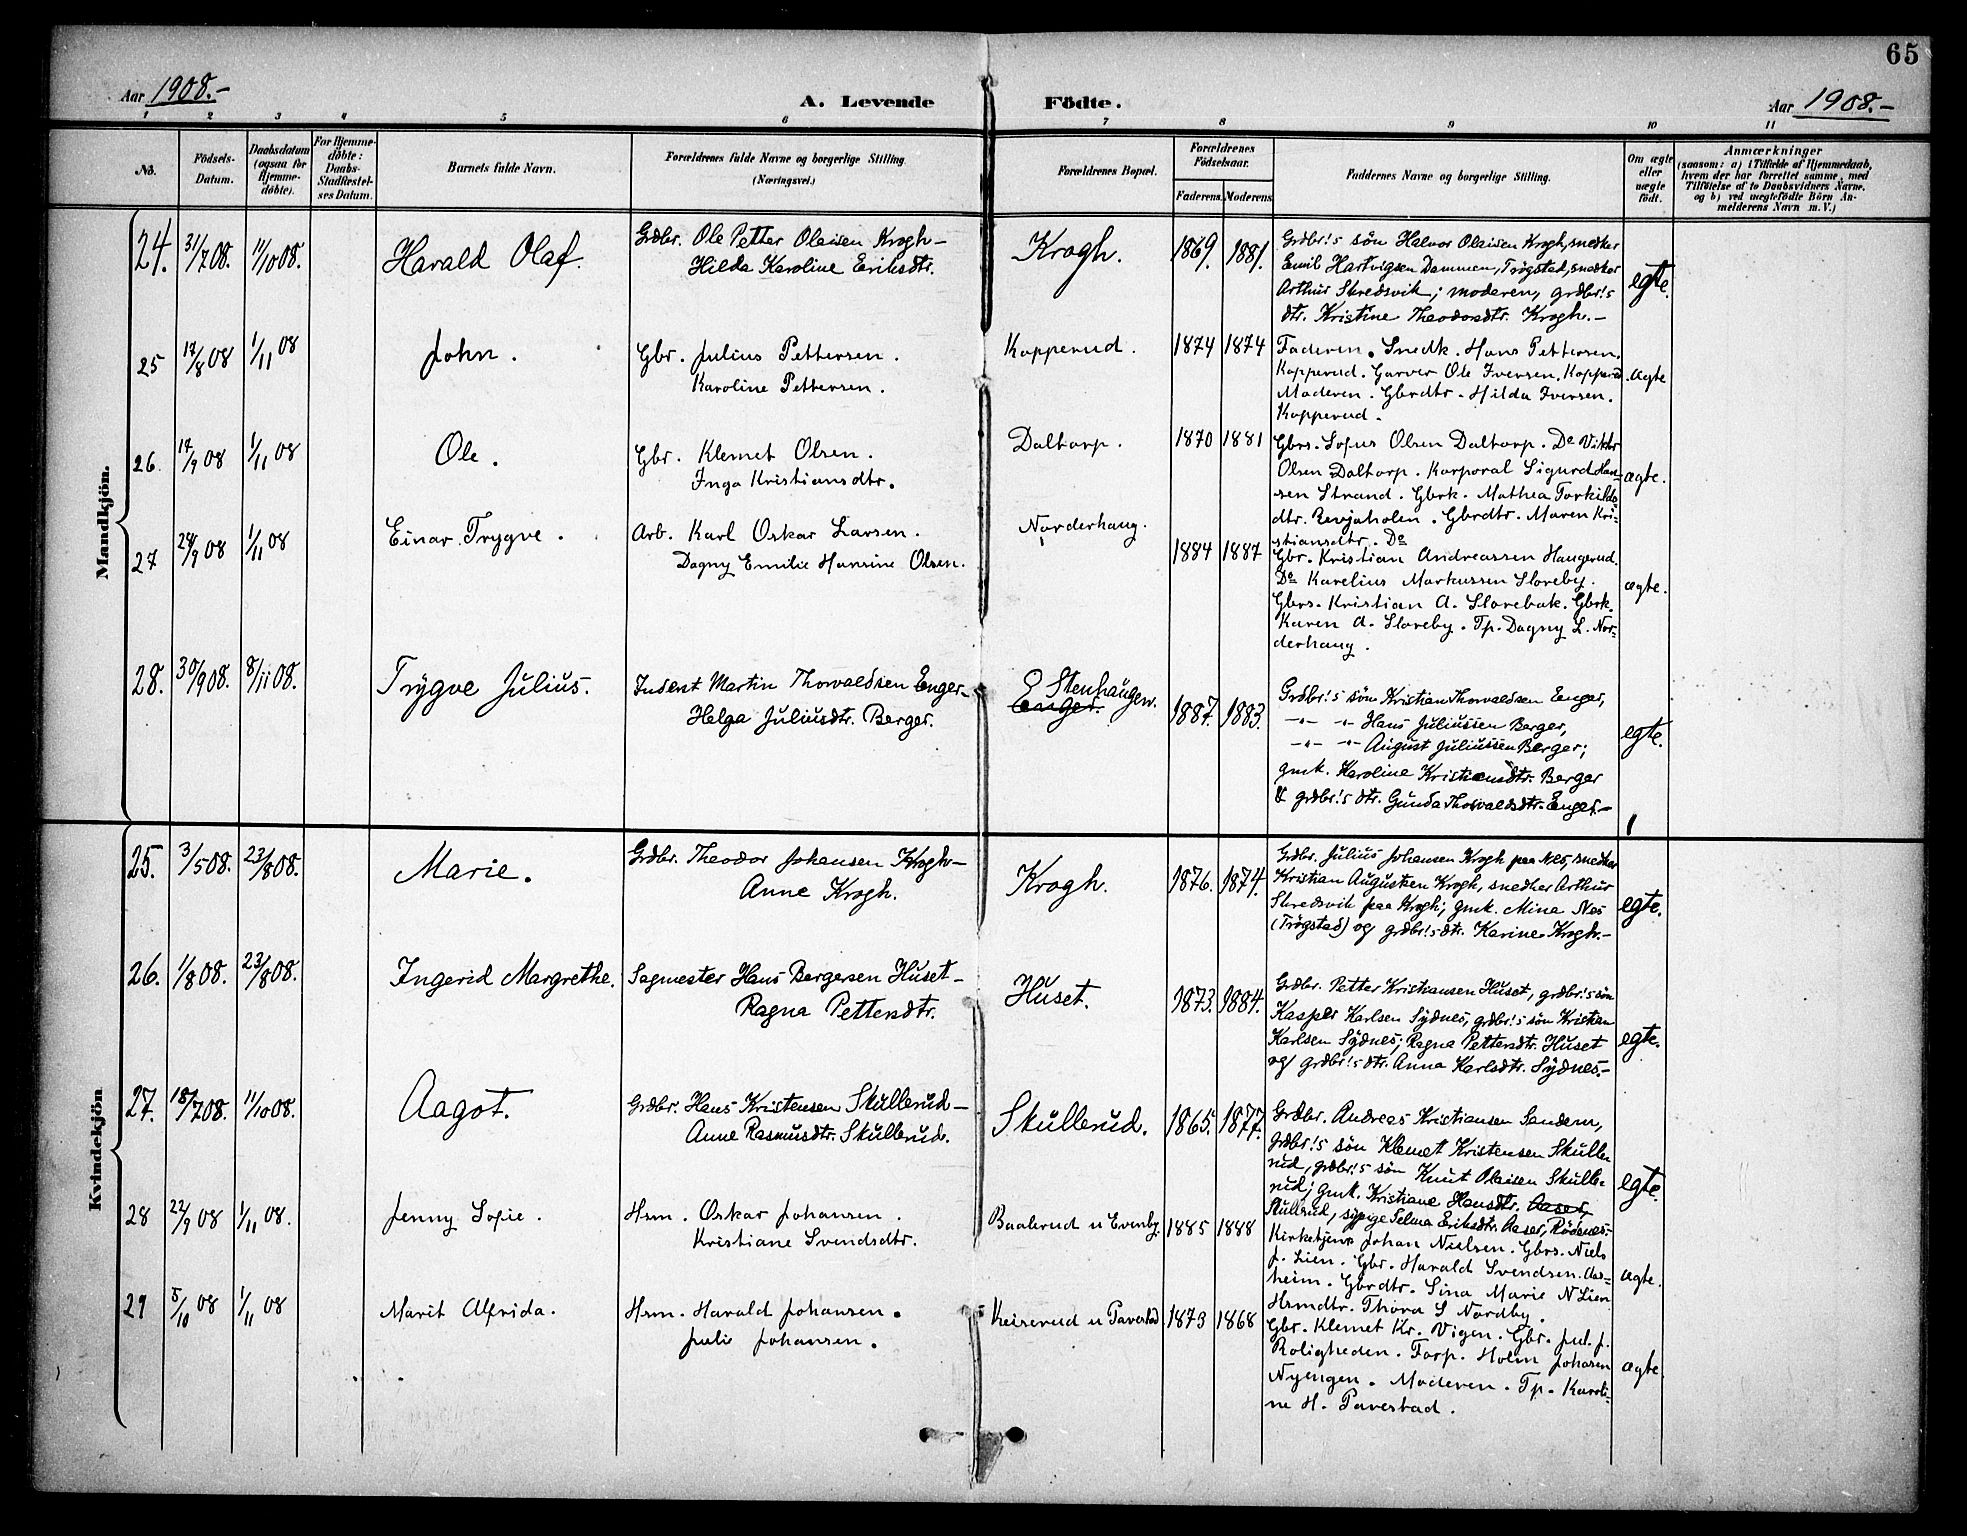 65
Aar 1908.-
A. Levende Födte.
Aar 1908.-
1 2 3 4 5 6 7 8 9 10 11
No.
Födsels-
Datum.
Daabsdatum
(ogsaa for
Hjemme-
döbte).
For Hjemme-
döbte:
Daabs-
Stadfæstel-
ses Datum.
Barnets fulde Navn.
Forældrenes fulde Navne og borgerlige Stilling
(Næringsvei.)
Forældrenes Bopæl.
Forældrenes
Födselsaar.
Faderens. Moderens.
Faddernes Navne og borgerlige Stilling.
Om ægte
eller
uægte
födt.
Anmærkninger
(saasom: a) i Tilfælde af Hjemmedaab,
hvem der har forrettet samme, med
Tilföielse af to Daabsvidners Navne.
og b) ved uægtefödte Börn An-
melderens Navn m. V.)
Mandkjön.
24. 31/7 08. 11/10 08. Harald Olaf. Grdbr. Ole Petter Olaisen Krogh-
Hilda Karoline Eriksdtr.
Krogh. 1869. 1881.
Grdbr!s sön Halvor Olaisen Krogh, snedker
Emil Hartvigsen Dammen, Trögstad, snedker
Arthur Skredsvik; moderen, grdbr!s
dtr. Kristine Theodorsdtr. Krogh.-
egte.
25 17/8 08 1/11 08 John. Gbr. Julius Pettersen.
Karoline Pettersen.
Kopperud. 1874 1874
Faderen. Snedk. Hans Pettersen.
Kopperud. Garver Ole Iversen. Kopperud
Moderen. Gbrdtr. Hilda Iversen.
Kopperud.
ægte
26. 17/9 08 1/11 08 Ole. Gbr. Klemet Olsen.
Inga Kristiansdtr.
Daltorp. 1870 1881
Gbrs. Sofus Olsen Daltorp. Do Viktor
Olsen Daltorp. Korporal Sigurd Han-
sen Strand. Gbrk. Mathea Torkilds-
dtr. Revjaholen. Gbrdtr. Maren Kri-
stiansdtr. Do
ægte.
27 24/9 08 1/11 08 Einar Trygve. Arb. Karl Oskar Larsen.
Dagny Emilie Hansine Olsen.
Norderhaug. 1884 1887
Gbr. Kristian Andreassen Haugerud.
Do Karelius Markussen Sloreby.
Gbrs. Kristian A. Slorebak. Gbrk.
Karen A. Sloreby. Tp. Dagny L. Nor-
derhaug.
ægte.
28. 30/9 08. 8/11 08. Trygve Julius. Inderst Martin Thorvaldsen Enger-
Helga Juliusdtr. Berger.
E Stenhaugen.
Enger. 1887. 1883.
Grdbr!s sön Kristian Thorvaldsen Enger,
-"- -"- Hans Juliussen Berger,
-"- -"- August Juliussen Berger;
gmk. Karoline Kristiansdtr. Berger
& grdbr!s dtr. Gunda Thorvaldsdtr. Enger.-
egte.
Kvindekjön
25. 3/5 08. 23/8 08. Marie. Grdbr. Theodor Johansen Krogh-
Anne Krogh.
Krogh. 1876. 1874.
Grdbr. Julius Johansen Krogh paa Nes, snedker
Kristian Augustsen Krogh, snedker Arthur
Skredsvik paa Krogh; gmk. Mina Nes
(Trögstad) og grdbr!s dtr. Karine Krogh.-
egte.
26. 1/8 08. 23/8 08. Ingerid Margrethe. Sagmester Hans Bergersen Huset-
Ragna Pettersdtr.
Huset. 1873. 1884.
Grdbr. Petter Kristiansen Huset, grdbr!s sön
Kasper Karlsen Sydnes, grdbr!s sön Kristian
Karlsen Sydnes; Ragna Pettersdtr. Huset
og grdbr!s dtr. Anna Karlsdtr. Sydnes.-
egte.
27. 18/7 08. 11/10 08. Aagot. Grdbr. Hans Kristensen Skullerud-
Anne Rasmusdtr. Skullerud.
Skullerud. 1865. 1877.
Grdbr. Andreas Kristiansen Sandem,
grdbr!s sön Klemet Kristensen Skulle-
rud, grdbr!s sön Knut Olaisen Skulle-
rud; gmk. Kristiane Hansdtr. Aaser,
Skullerud, sypige Selma Eriksdtr. Aaser, Rödenes.-
egte.
28 22/9 08 1/11 08. Jenny Sofie. Hrm. Oskar Johansen.
Kristiane Svendsdtr.
Baaberud u Evenby. 1885 1888
Kirketjener Johan Nielsen. Gbrs. Niels
J. Lien. Gbr. Harald Svendsen. Aas-
heim. Gbrdtr. Sina Marie N Lien
Hrmdtr. Thora S Nordby.
ægte.
29 5/10 08 1/11 08 Marit Alfrida. Hrm. Harald Johansen.
Julie Johansen.
Keiserud u Taverstad 1873 1868
Gbr. Klemet Kr. Vigen. Gbr. Jul. J.
Roligheden. Forp. Holm Johasen
Nyengen. Moderen. Tp. Karoli-
ne H. Taverstad.
ægte